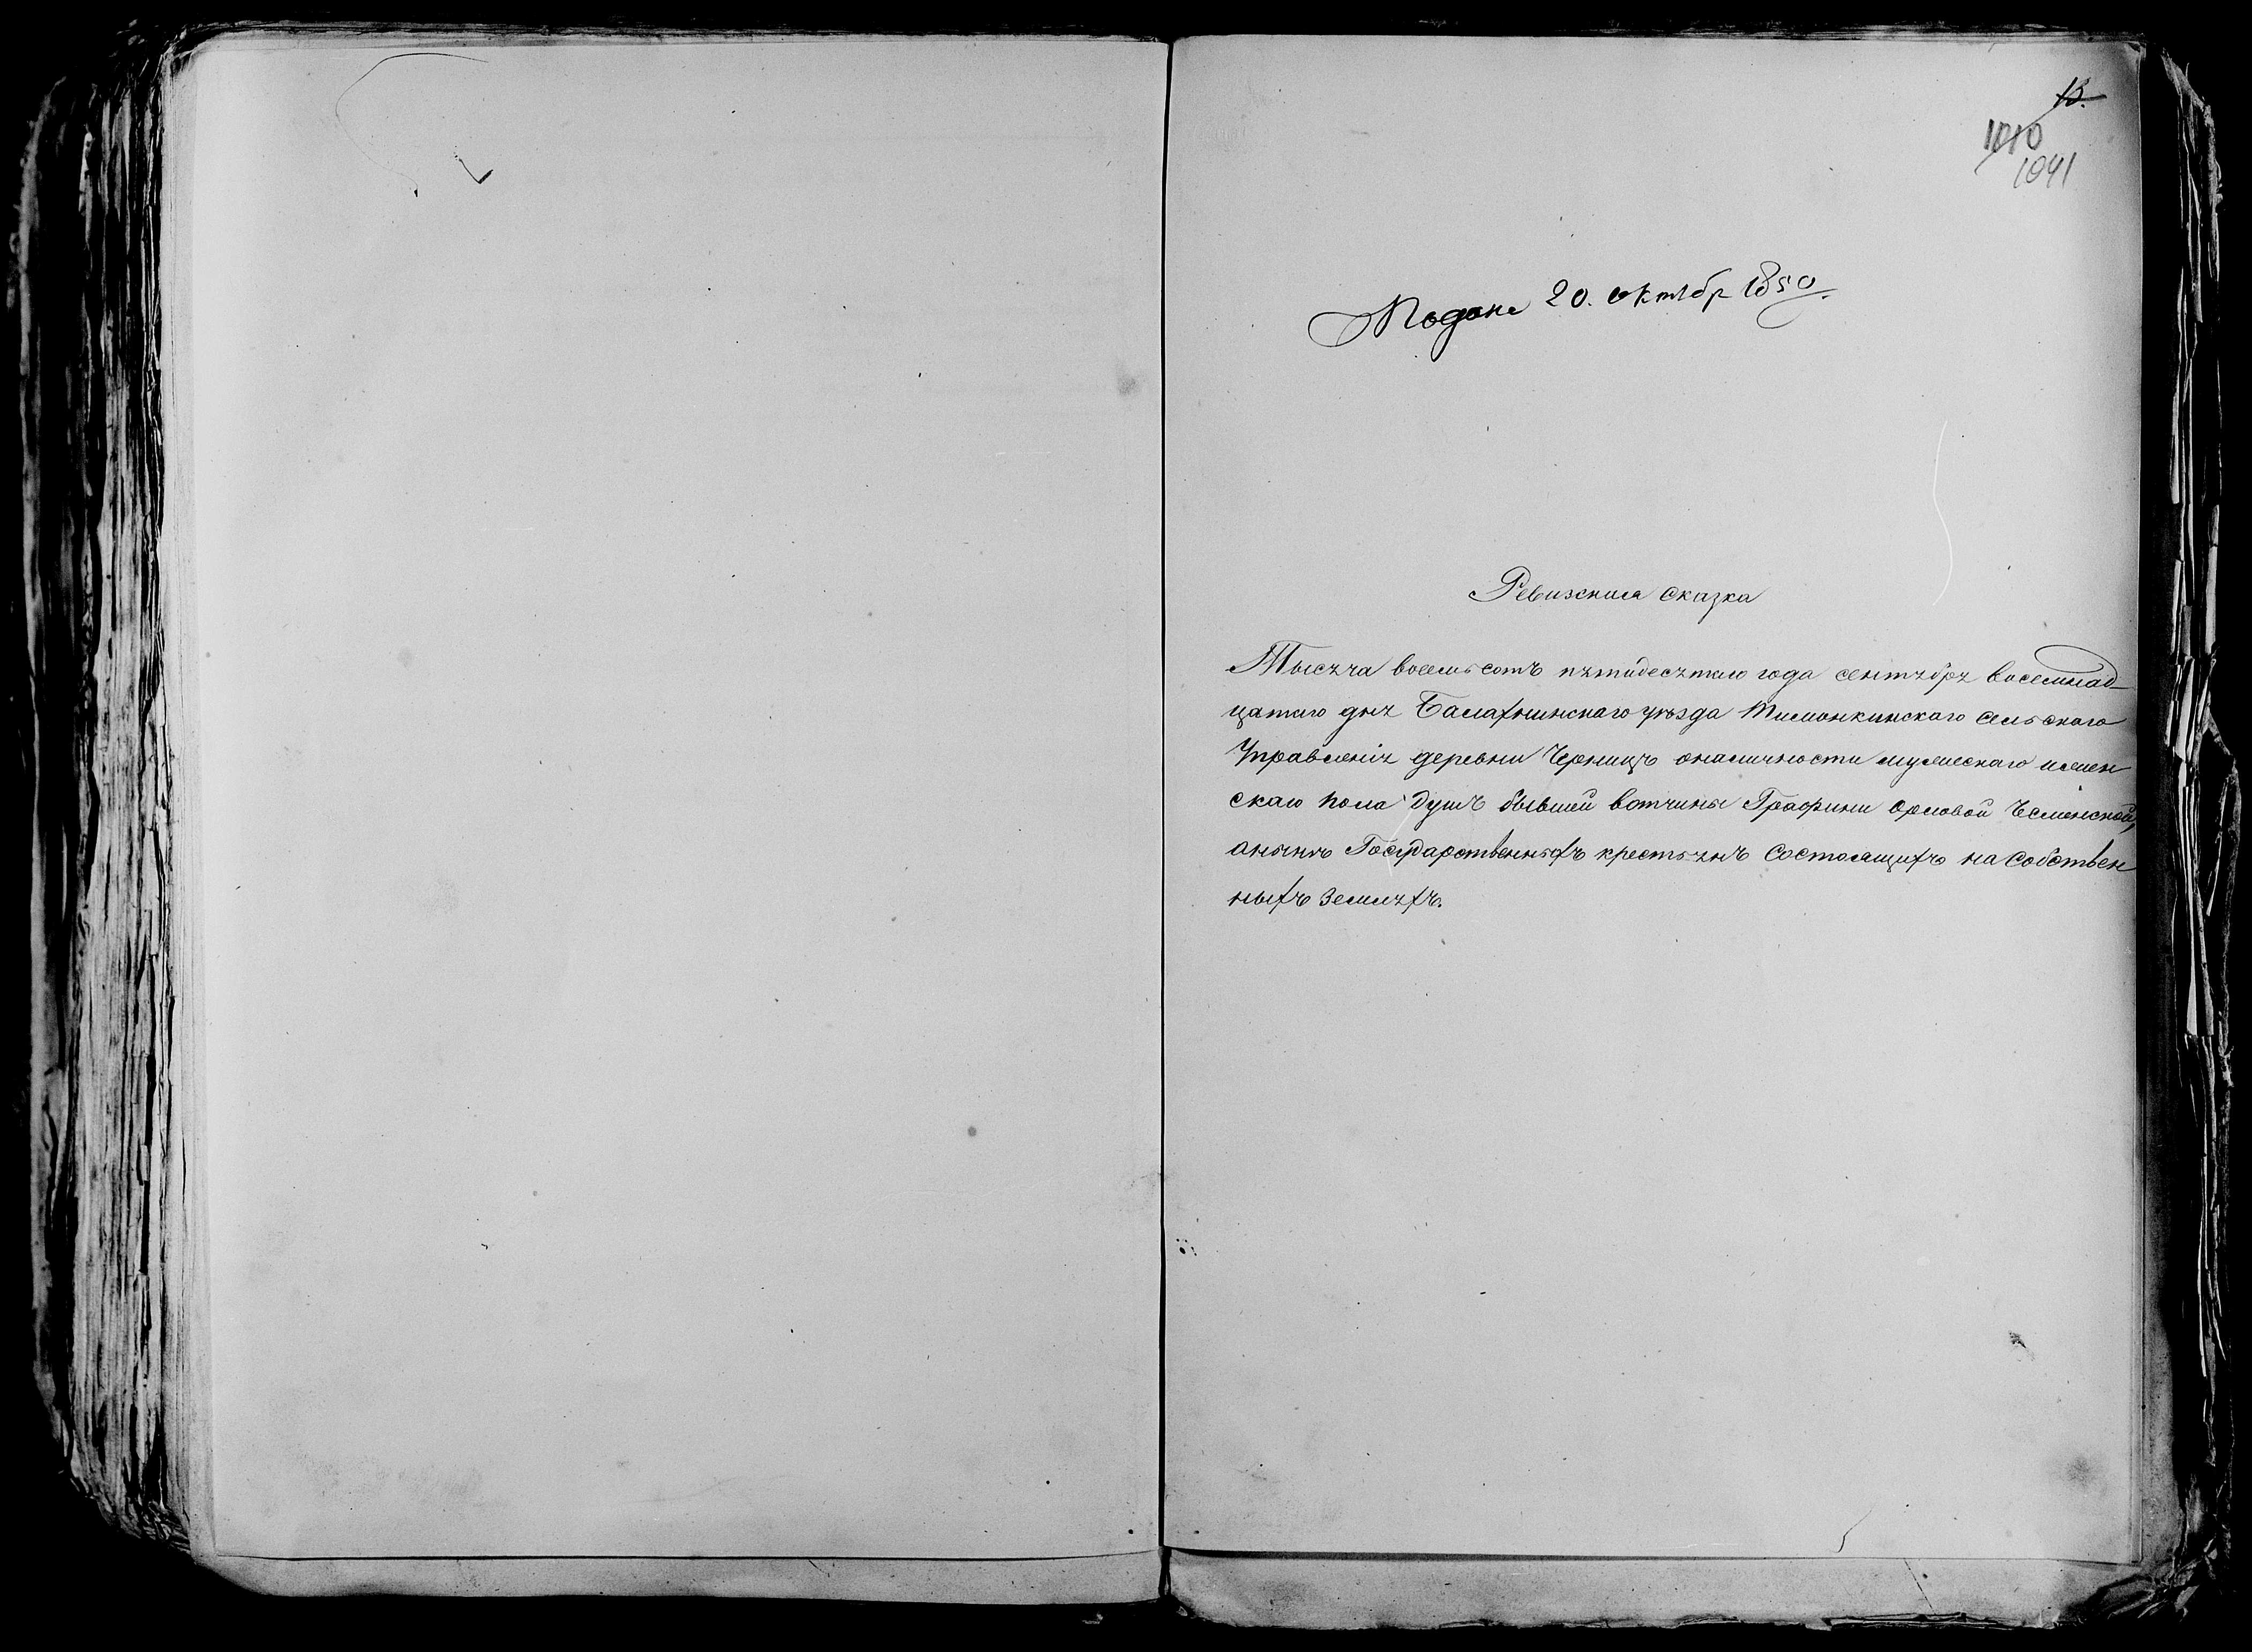 13.
1010
1041
Подана 20. октябр 1850.
Ревизская сказка
Тысяча восемь сотъ пятидесятаго года сентября восемнад-
цатаго дня Балахнинскаго уѣзда Тимонкинскаго сельскаго
Управленія деревни Черницъ оналичности мужескаго ижен
скаго пола душъ бывшей вотчины Графини Орловой Чесменской,
анынѣ Государственныхъ крестьянъ Состоящихъ на Собствен
ныхъ Земляхъ.